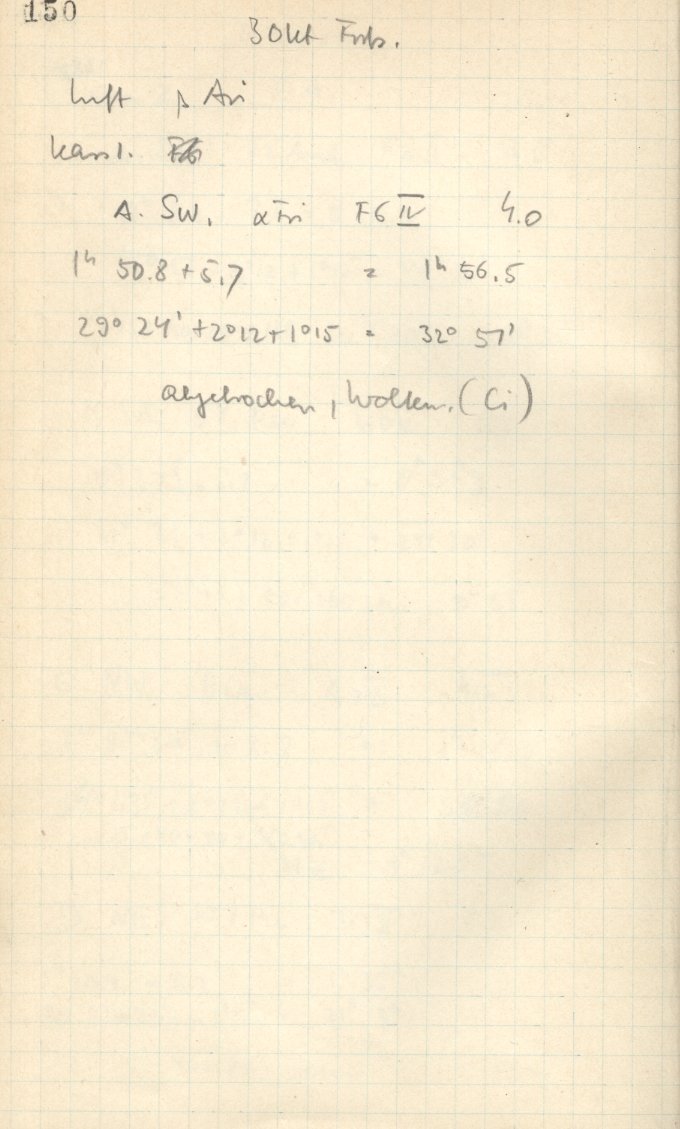 150
30 Okt Frb.
Luft β Ari
Kass 1.
A. Sw. α Tri F6 IV 4.0
1h 50.8 + 5.7 = 1h 56.5
29° 24' + 2°12 + 1°15 = 32° 51'
abgebrochen, Wolken. (Ci)